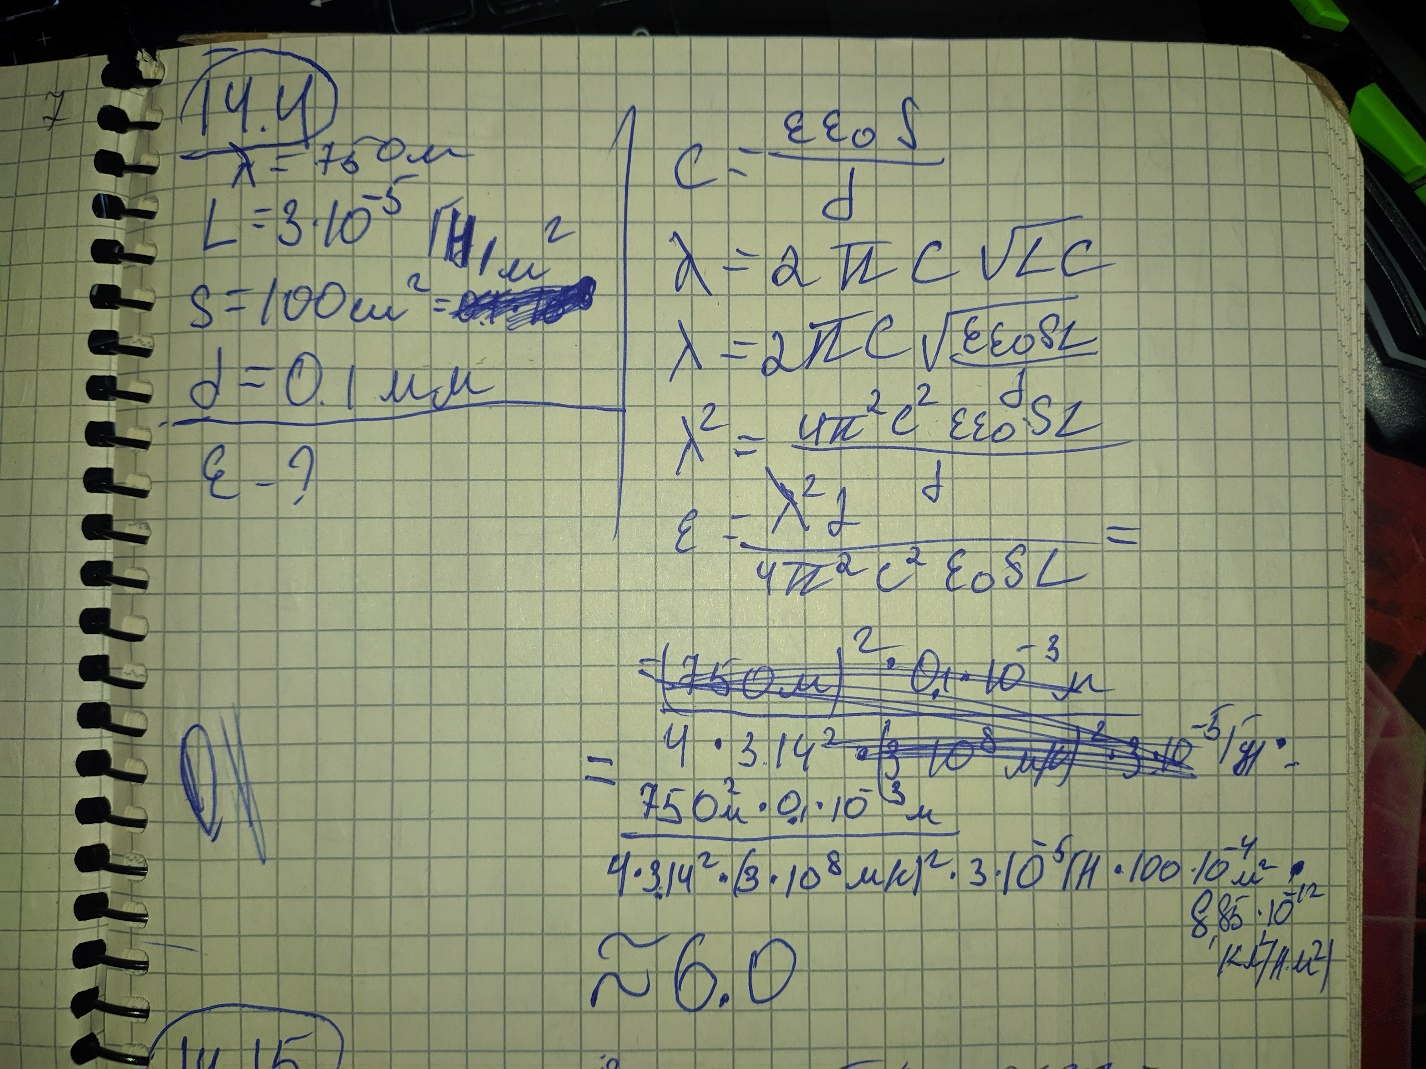 7
14.4
λ = 750 м
L = 3·10⁻⁵ Гн
S = 100 см² = м²
d = 0.1 мм
ε - ?
C = εε₀S / d
λ = 2πC √LC
λ = 2πC √(εε₀SL / d)
λ² = 4π²c² εε₀SL / d
ε = λ²d / 4π²c² ε₀SL =
= (750 м)² · 0,1·10⁻³ м
= 4 · 3.14² · (3·10⁸ м/с)² · 3·10⁻⁵ Гн ·
750 м² · 0,1·10⁻³ м
4·3,14²·(3·10⁸ м/с)²·3·10⁻⁵ Гн·100·10⁻⁴ м² ·
8,85·10⁻¹²
Кл²/(Н·м²)
≈ 6.0
14.15